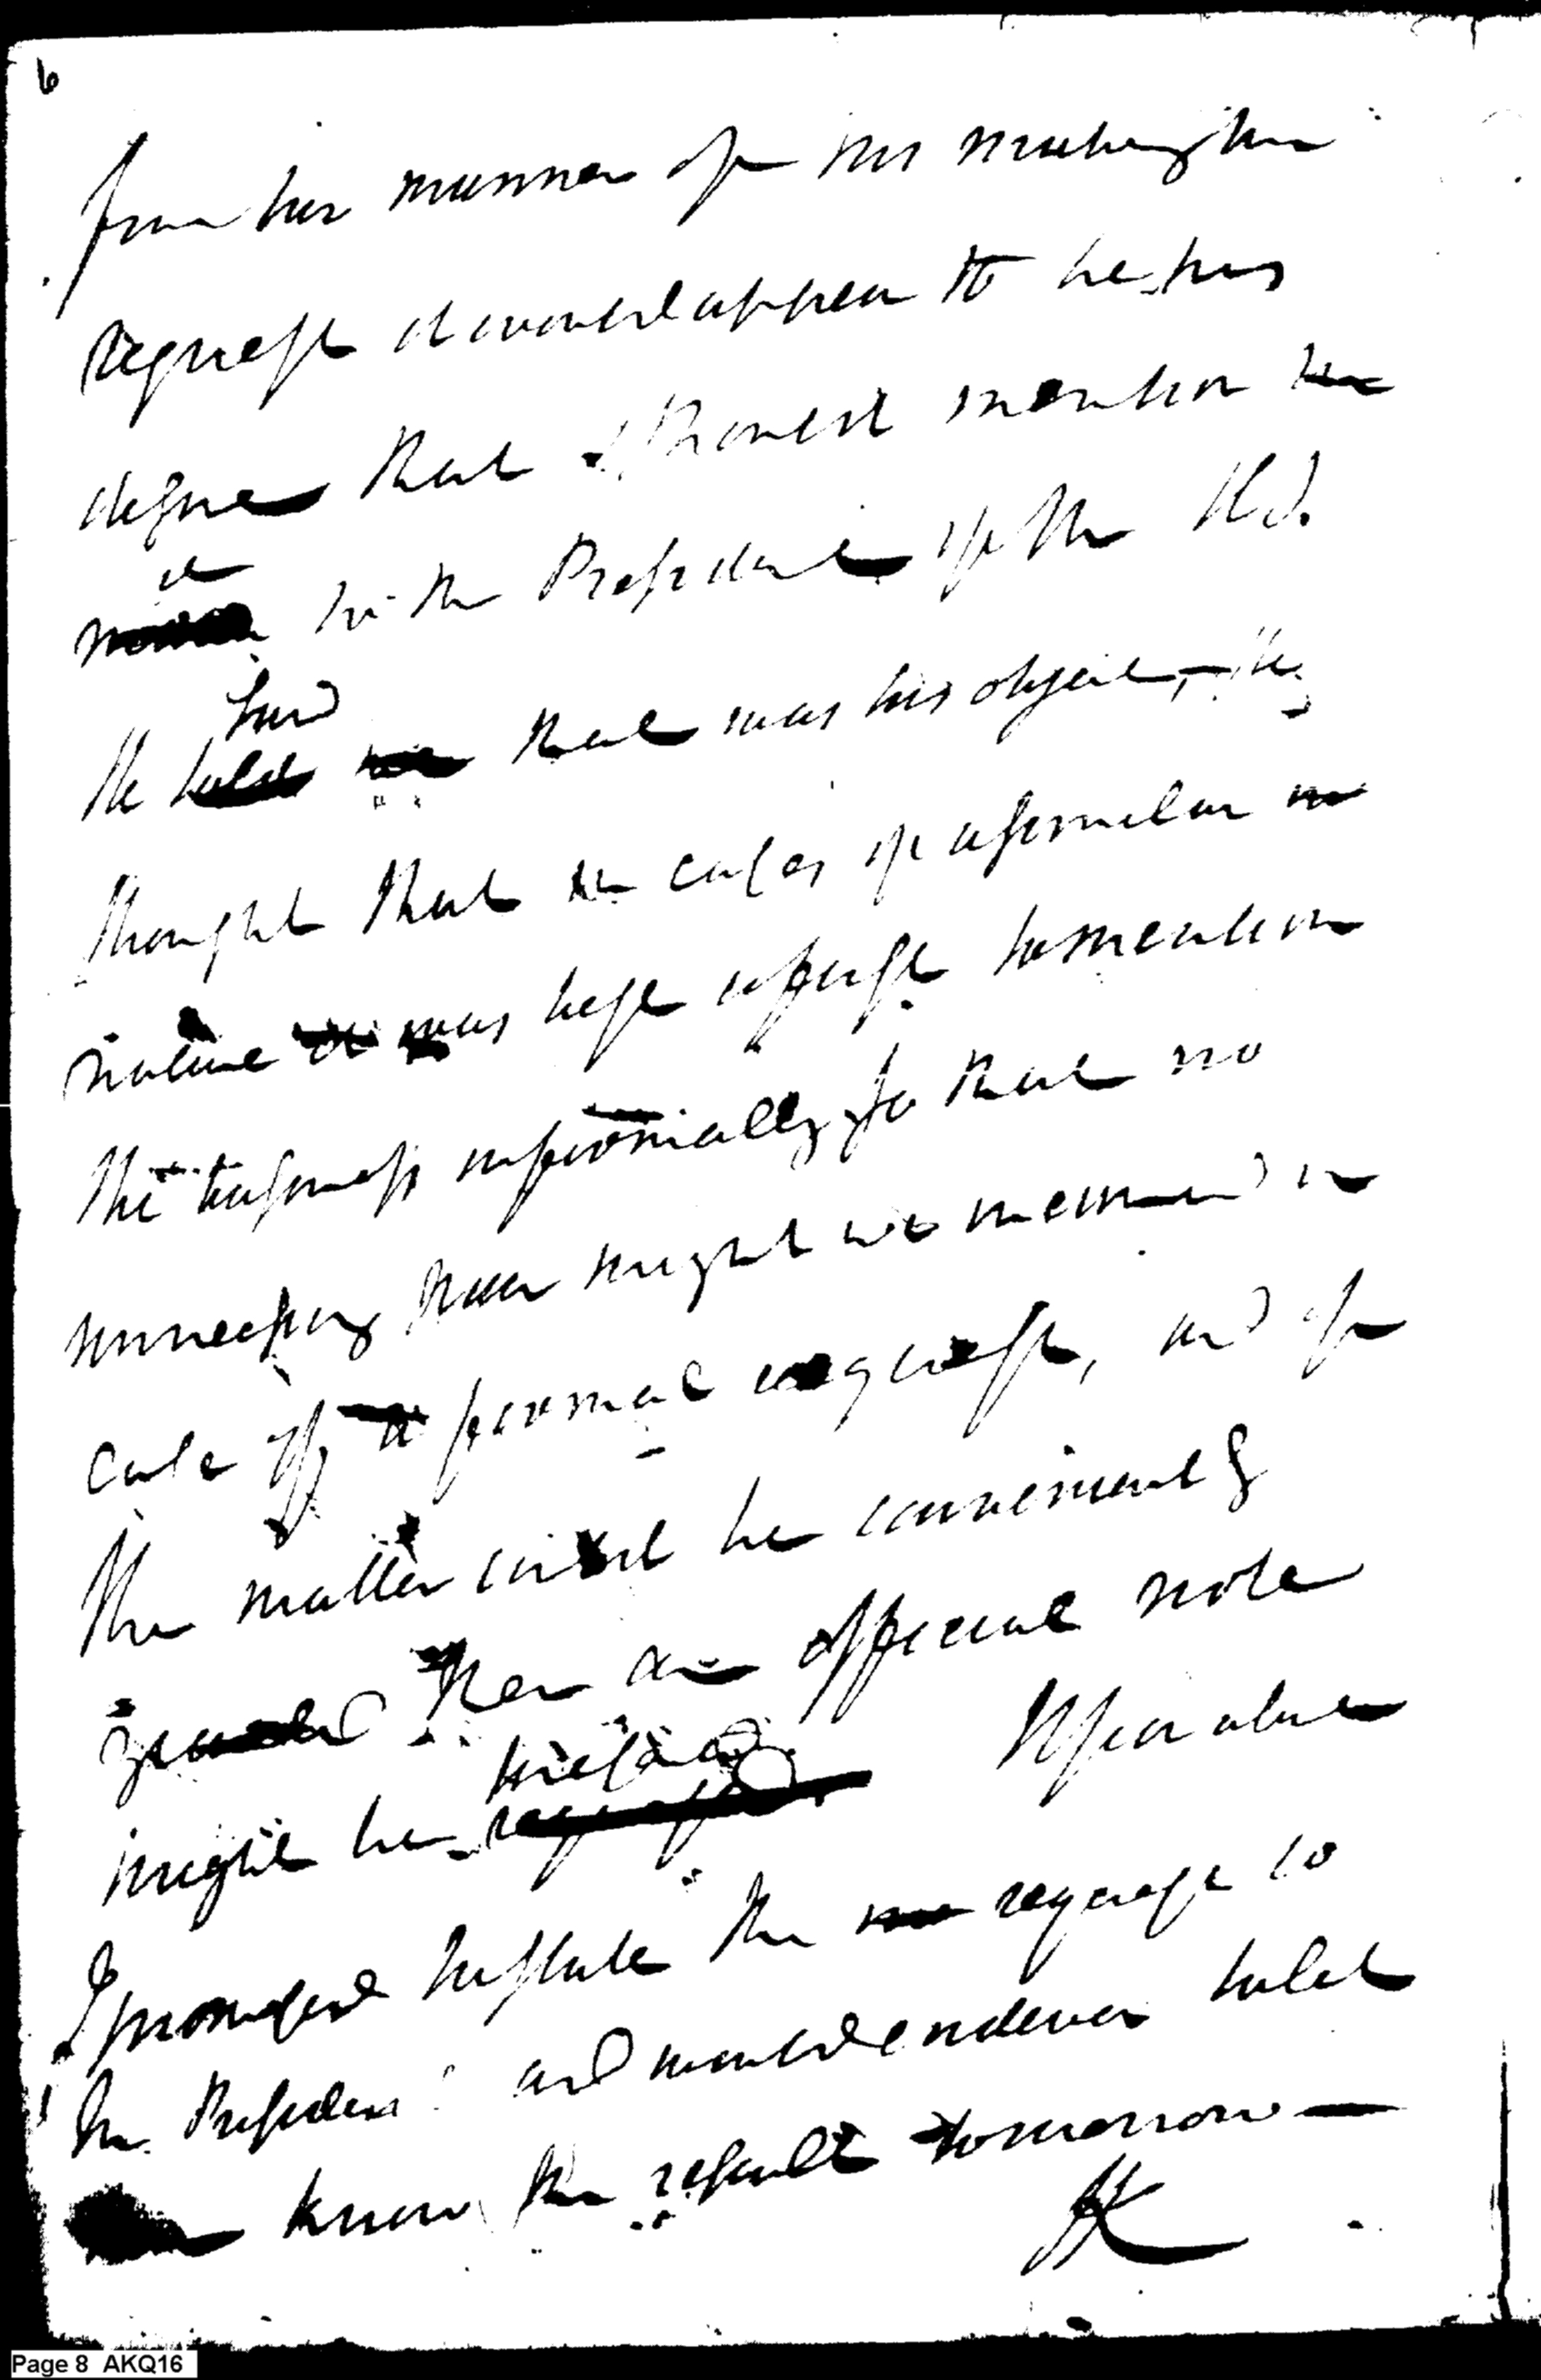 6
from his manner of his making this
request it would appear to be his
desire that I should mention
it to the President of the U.S.
He said that was his object, — He
thought that in cases of a similar
nature it was best at first to mention
the business informally so that no
unnecessary hour might be in
case of a formal request, and if
the matter could be conveniently
granted then an official note
might be Upon about
I promised to state the request to
the President and would endeavor to let
know the result tomorrow —
K
Page 8 AKQ16